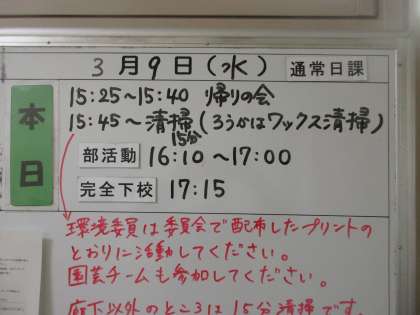 3月9日(水) 通常日課
本日
15:25～15:40 帰りの会
15:45～清掃(ろうかはワックス清掃)
15分
部活動 16:10～17:00
完全下校 17:15
環境委員は委員会で配布したプリントの
とおりに活動してください。
園芸チームも参加してください。
廊下以外のところは15分清掃です。